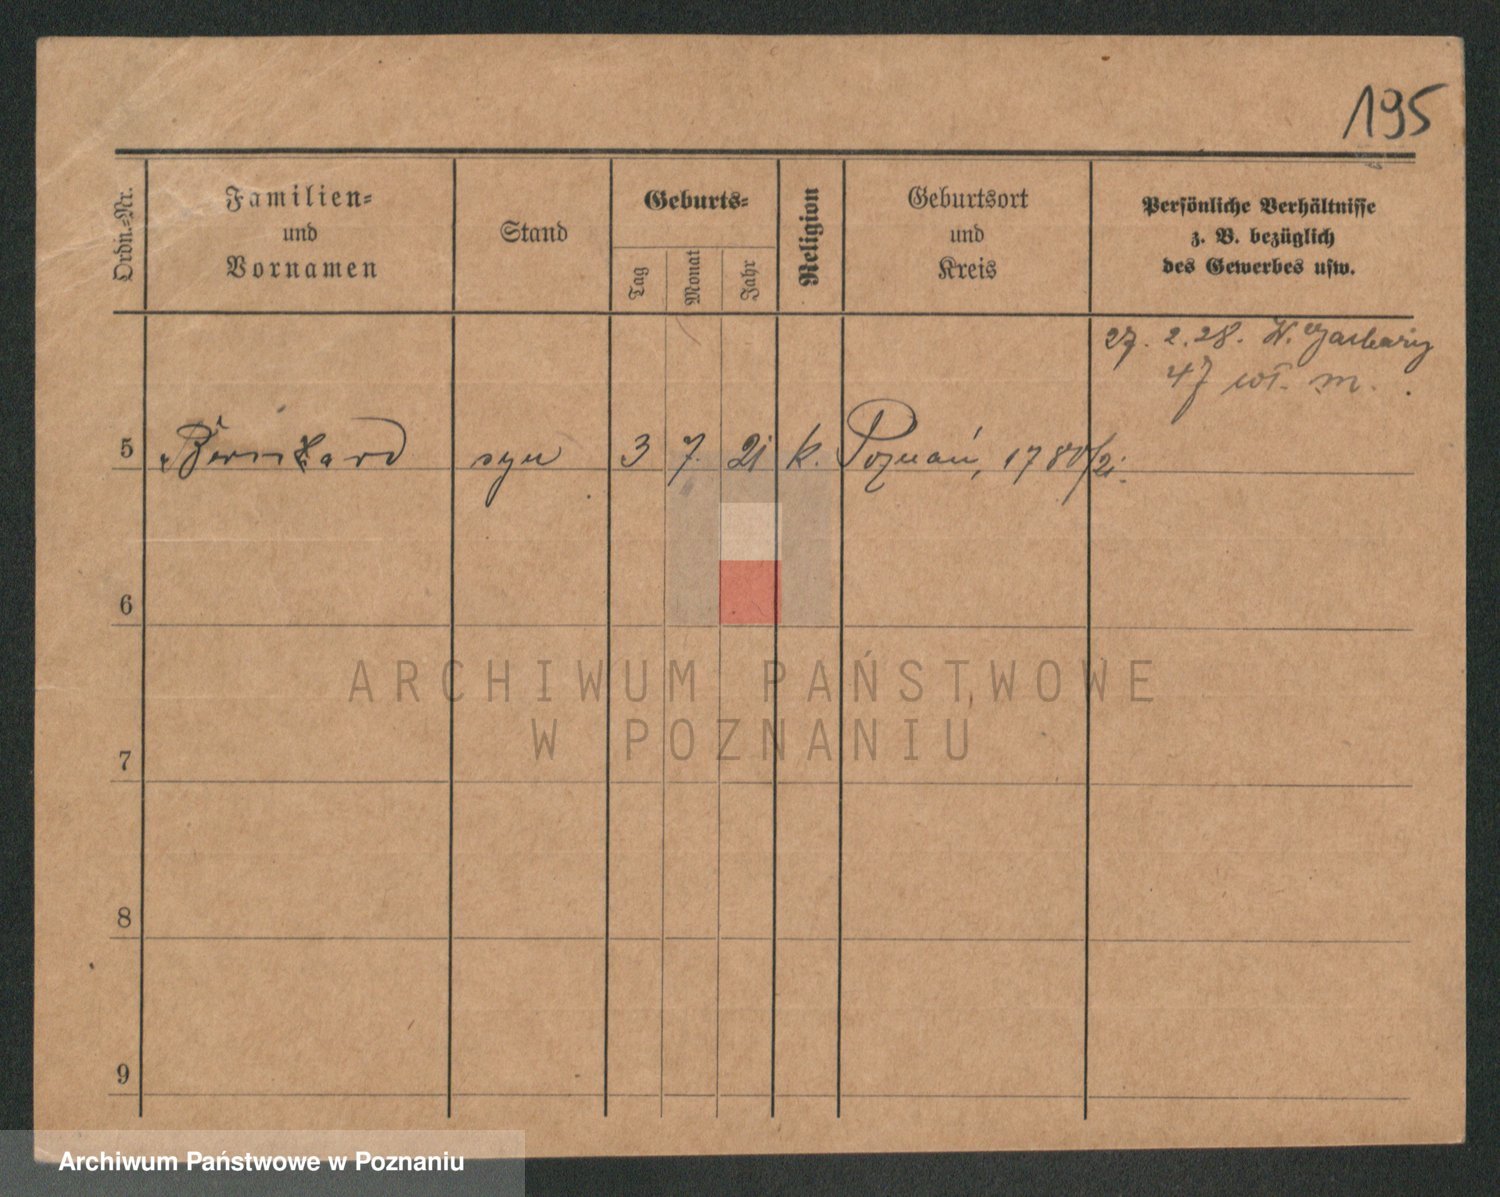 195
Ordn.-Nr.
Familien-
und
Vornamen
Stand
Geburts-
Tag
Monat
Jahr
Religion
Geburtsort
und
Kreis
Persönliche Verhältnisse
z. B. bezüglich
des Gewerbes usw.
27. 2. 28. W. Garbary
47 wł. m.
5 Bernhard syn 3 7. 21 k. Poznań, 1780/21.
6
7
8
9
ARCHIWUM PAŃSTWOWE
W POZNANIU
Archiwum Państwowe w Poznaniu